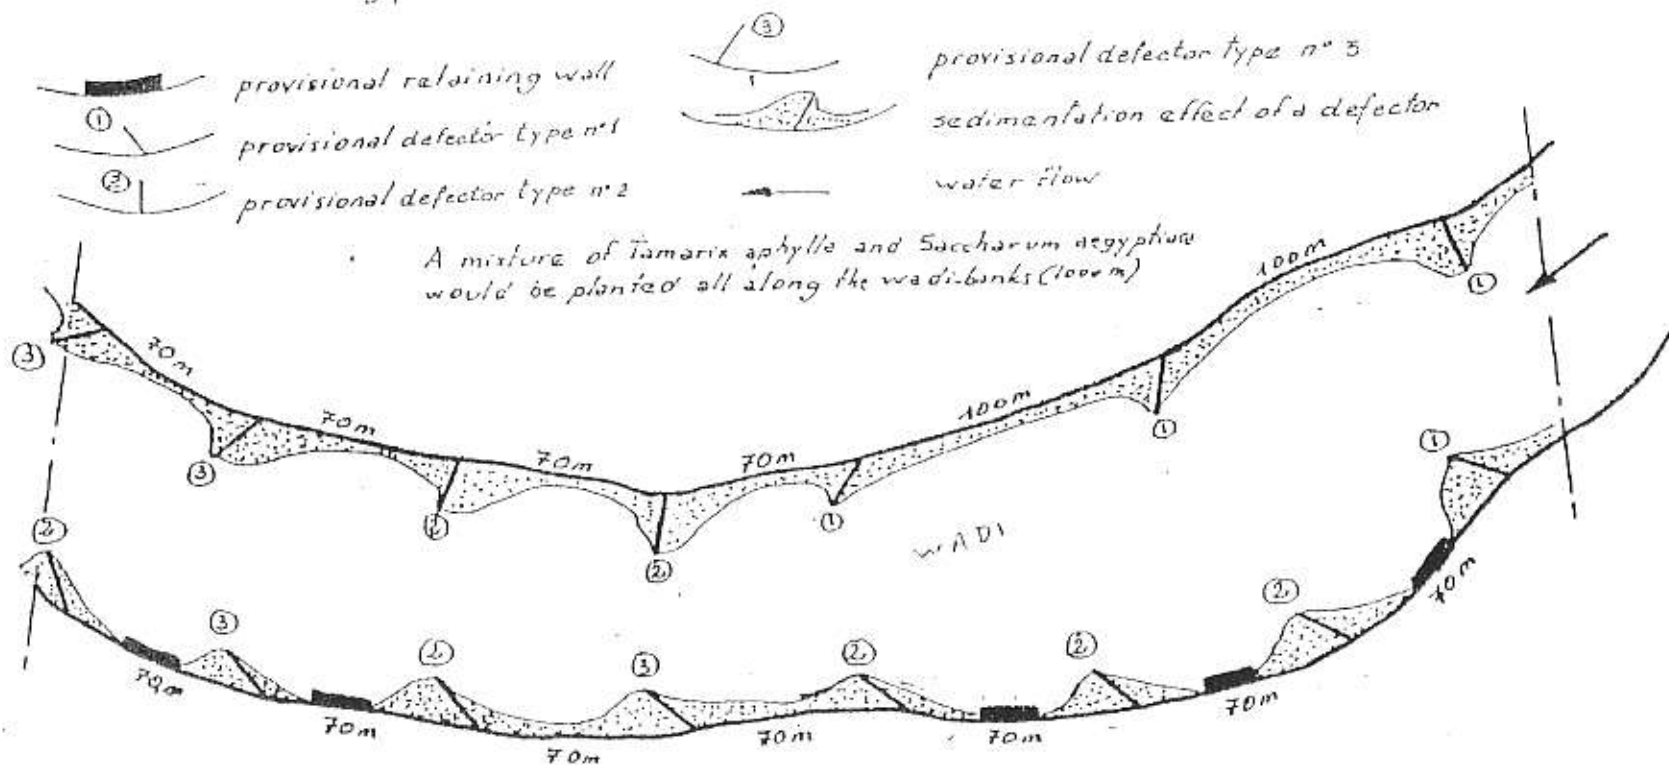 provisional retaining wall
①
provisional defector type n°1
②
provisional defector type n°2
③
provisional defector type n° 3
sedimentation effect of a defector
water flow
A mixture of Tamarix aphylla and Saccharum aegyptiaca
would be planted all along the wadi-banks (1000 m)
100m
①
③
70m
70m
③
70m
②
70m
②
①
100m
①
WADI
①
70m
②
70m
③
70m
②
70m
③
70m
②
70m
②
70m
②
70m